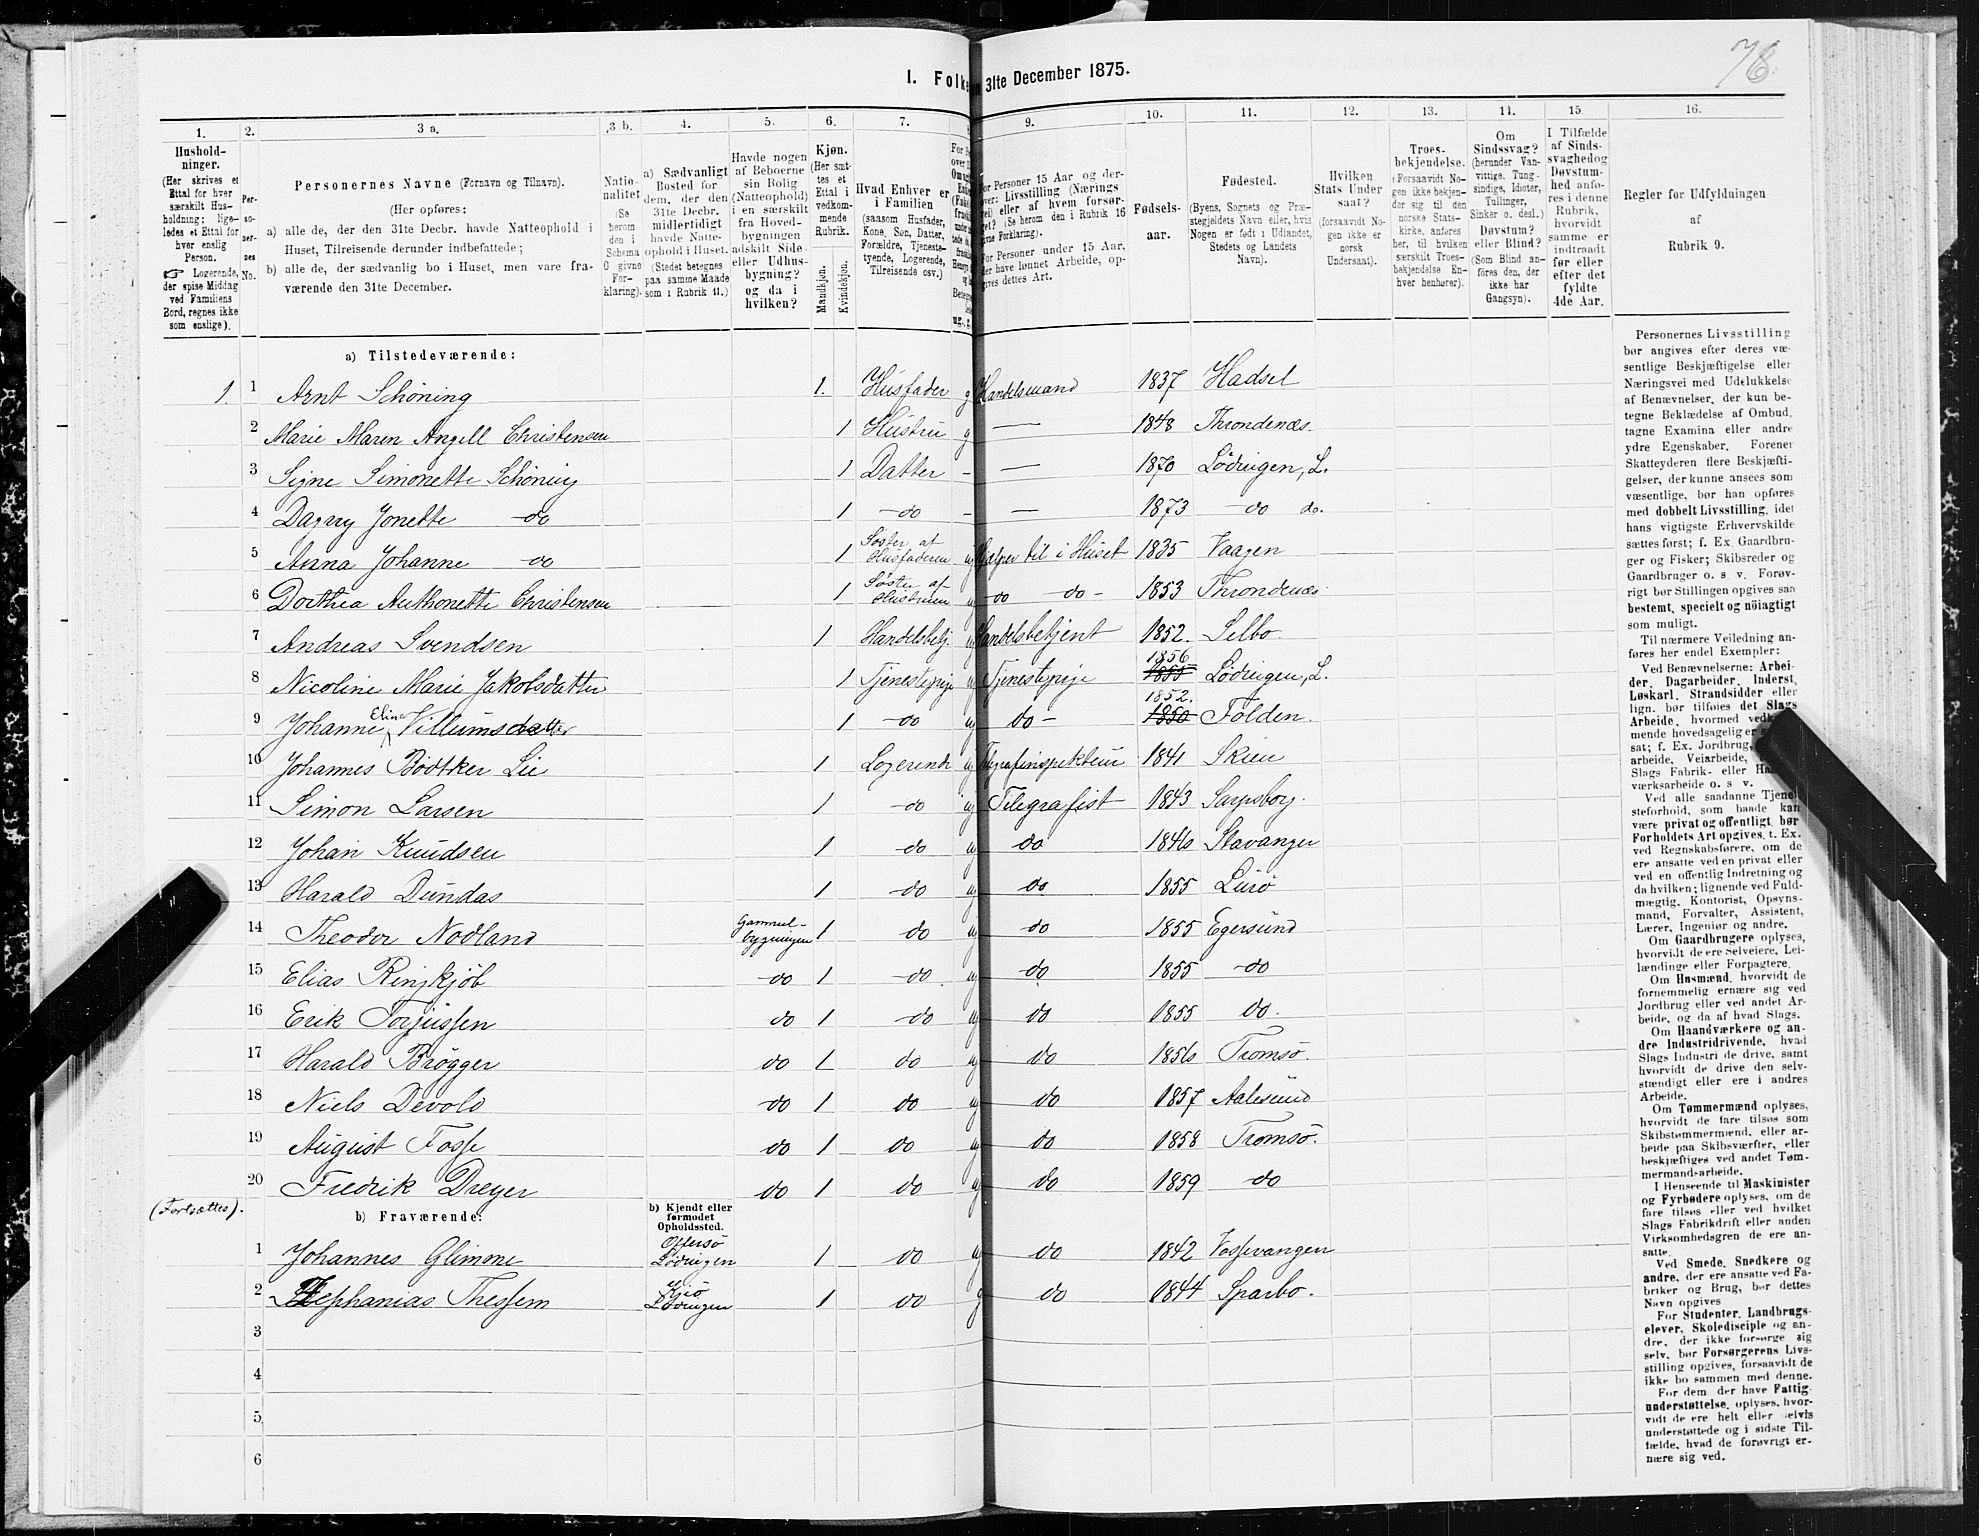 78.
I. Folke 31te December 1875.
1. 2. 3 a. 3 b. 4. 5. 6. 7. 8 9. 10. 11. 12. 13. 14. 15. 16.
Hushold-
ninger.
(Her skrives et
Ettal for hver
særskilt Hus-
holdning; lige-
ledes et Ettal for
hver enslig
Person.
☞ Logerende,
der spise Middag
ved Familiens
Bord, regnes ikke
som enslige).
Per-
so-
ner-
nes
No.
Personernes Navne (Fornavn og Tilnavn).
(Her opføres:
a) alle de, der den 31te Decbr. havde Natteophold i
Huset, Tilreisende derunder indbefattede;
b) alle de, der sædvanlig bo i Huset, men vare fra-
værende den 31te December.
Natio-
nalitet
(Se
herom
den i
Schema
0 givne
For-
klaring).
a) Sædvanligt
Bosted for
dem, der den
31te Decbr.
midlertidigt
havde Natte-
ophold i Huset.
(Stedet betegnes
paa samme Maade
som i Rubrik 11.)
Havde nogen
af Beboerne
sin Bolig
(Natteophold)
i en særskilt
fra Hoved-
bygningen
adskilt Side-
eller Udhus-
bygning?
og da i
hvilken?
Kjøn.
(Her sæt-
tes et
Ettal i
vedkom-
mende
Rubrik.
Mandkjøn.
Kvindekjøn.
Hvad Enhver er
i Familien
(saasom Husfader,
Kone, Søn, Datter,
Forældre, Tjeneste-
tyende, Logerende,
Tilreisende osv.)
For Personer 15 Aar og der-
over: Livsstilling (Nærings
vei) eller af hvem forsør-
get? (Se herom den i Rubrik 16
givne Forklaring).
For Personer under 15 Aar,
der have lønnet Arbeide, op-
gives dettes Art.
Fødsels-
aar.
Fødested.
(Byens, Sognets og Præ-
stegjeldets Navn eller, hvis
Nogen er født i Udlandet,
Stedets og Landets
Navn).
Hvilken
Stats Under
saat?
(forsaavidt No-
gen ikke er
norsk
Undersaat).
Troes-
bekjendelse.
(Forsaavidt No-
gen ikke bekjen-
der sig til den
norske Stats-
kirke, anføres
her, til hvilken
særskilt Troes-
bekjendelse En-
hver henhører).
Om
Sindssvag?
(herunder Van-
vittige, Tung-
sindige, Idioter,
Tullinger,
Sinker o. desl.)
Døvstum?
eller Blind?
(Som Blind an-
føres den, der
ikke har
Gangsyn).
I Tilfælde
af Sinds-
svaghed og
Døvstum-
hed anfø-
res i denne
Rubrik,
hvorvidt
samme er
indtraadt
før eller
efter det
fyldte
4de Aar.
Regler for Udfyldningen
af
Rubrik 9.
a) Tilstedeværende:
1. 1 Arnt Schöning 1. Husfader g Handelsmand 1837 Hadsel
2 Marie Maren Angell Christensen 1 Hustru g — 1848 Throndenæs.
3 Signe Simonette Schöning 1 Datter - — 1870 Lödingen, L.
4 Dagny Jonette do 1 do - — 1873 do do.
5 Anna Johanne do 1 Søster af Husfaderen ug Hjælper til i Huset 1835 Vaagen
6 Dorthea Anthonette Christensen 1 Søster af Hustruen ug do do - 1853 Throndenæs
7 Andreas Svendsen 1 Handelsbetj. ug Handelsbetjent 1852. Selbo.
8 Nicoline Marie Jakobsdatter 1 Tjenestepige ug Tjenestepige 1855 1856 Lödingen, L.
9 Johanne Eline Villumsdatter 1 do ug do - 1850 1852. Folden.
10 Johannes Bödtker Lie 1 Logerende ug Telegrafinspekteur 1841 Skien
11 Simon Larsen 1 do ug Telegrafist 1843 Sarpsborg.
12 Johan Knudsen 1 do ug do 1846 Stavanger
13 Harald Dundas 1 do ug do 1855 Lurö
14 Theodor Nodland Gammel-bygningen 1 do ug do 1855 Egersund
15 Elias Ringkjöb do 1 do ug do 1855 do
16 Erik Torjussen do 1 do ug do 1855 do.
17 Harald Brögger do 1 do ug do 1856 Tromsö.
18 Niels Devold do 1 do ug do 1857 Aalesund
19 August Fosse do 1 do ug do 1858 Tromsö.
20 Fredrik Dreyer do 1 do ug do 1859 do
(Fortsættes).
b) Fraværende:
b) Kjendt eller
formodet
Opholdssted.
1 Johannes Glimme Offersö Lödingen 1 do ug do 1842 Vossevangen
2 Stephanias Thessem Kjiö Lödingen 1 do g do 1844 Sparbo.
3
4
5
6
Personernes Livsstilling
bør angives efter deres væ-
sentlige Beskjæftigelse eller
Næringsvei med Udelukkelse
af Benævnelser, der kun be-
tegne Beklædelse af Ombud,
tagne Examina eller andre
ydre Egenskaber. Forener
Skatteyderen flere Beskjæfti-
gelser, der kunne ansees som
væsentlige, bør han opføres
med dobbelt Livsstilling, idet
hans vigtigste Erhvervskilde
sættes først; f. Ex. Gaardbru-
ger og Fisker; Skibsreder og
Gaardbruger o. s. v. Forøv-
rigt bør Stillingen opgives saa
bestemt, specielt og nöiagtigt
som muligt.
Til nærmere Veiledning an-
føres her endel Exempler:
Ved Benævnelserne: Arbei-
der, Dagarbeider, Inderst,
Løskarl, Strandsidder eller
lign. bør tilføies det Slags
Arbeide, hvormed vedkom-
mende hovedsagelig er
sat; f. Ex. Jordbrug,
arbeide, Veiarbeide,
Slags Fabrik- eller Haand-
værksarbeide o. s. v.
Ved alle saadanne Tjene-
steforhold, som baade kan
være privat og offentligt, bør
Forholdets Art opgives, t. Ex.
ved Regnskabsførere, om de
ere ansatte ved en privat eller
ved en offentlig Indretning og
da hvilken; lignende ved Fuld-
mægtig, Kontorist, Opsyns-
mand, Forvalter, Assistent,
Lærer, Ingeniør og andre.
Om Gaardbrugere oplyses,
hvorvidt de ere Selveiere, Lei-
lændinge eller Forpagtere.
Om Husmænd, hvorvidt de
fornemmelig ernære sig ved
Jordbrug eller ved andet Ar-
beide, og da af hvad Slags.
Om Haandværkere og an-
dre Industridrivende, hvad
Slags Industri de drive, samt
hvorvidt de drive den selv-
stændigt eller ere i andres
Arbeide.
Om Tømmermænd oplyses,
hvorvidt de fare tilsøs som
Skibstømmermænd, eller ar-
beide paa Skibsværfter, eller
beskjæftiges ved andet Tøm-
mermandsarbeide.
I Henseende til Maskinister
og Fyrbødere oplyses, om de
fare tilsøs eller ved hvilket
Slags Fabrikdrift eller anden
Virksomhedsgren de ere an-
satte.
Ved Smede, Snedkere og
andre, der ere ansatte ved Fa-
briker og Brug, bør dettes
Navn opgives
For Studenter, Landbrugs-
elever, Skoledisciple og an-
dre, der ikke forsørge sig
selv, bør Forsørgerens Livs-
stilling opgives, forsaavidt de
ikke bo sammen med denne.
For dem der have Fattig-
understøttelse, oplyses, hvor-
vidt de ere helt eller delvis
understøttede og i sidste Til-
fælde, hvad de forøvrigt er-
nære sig ved.